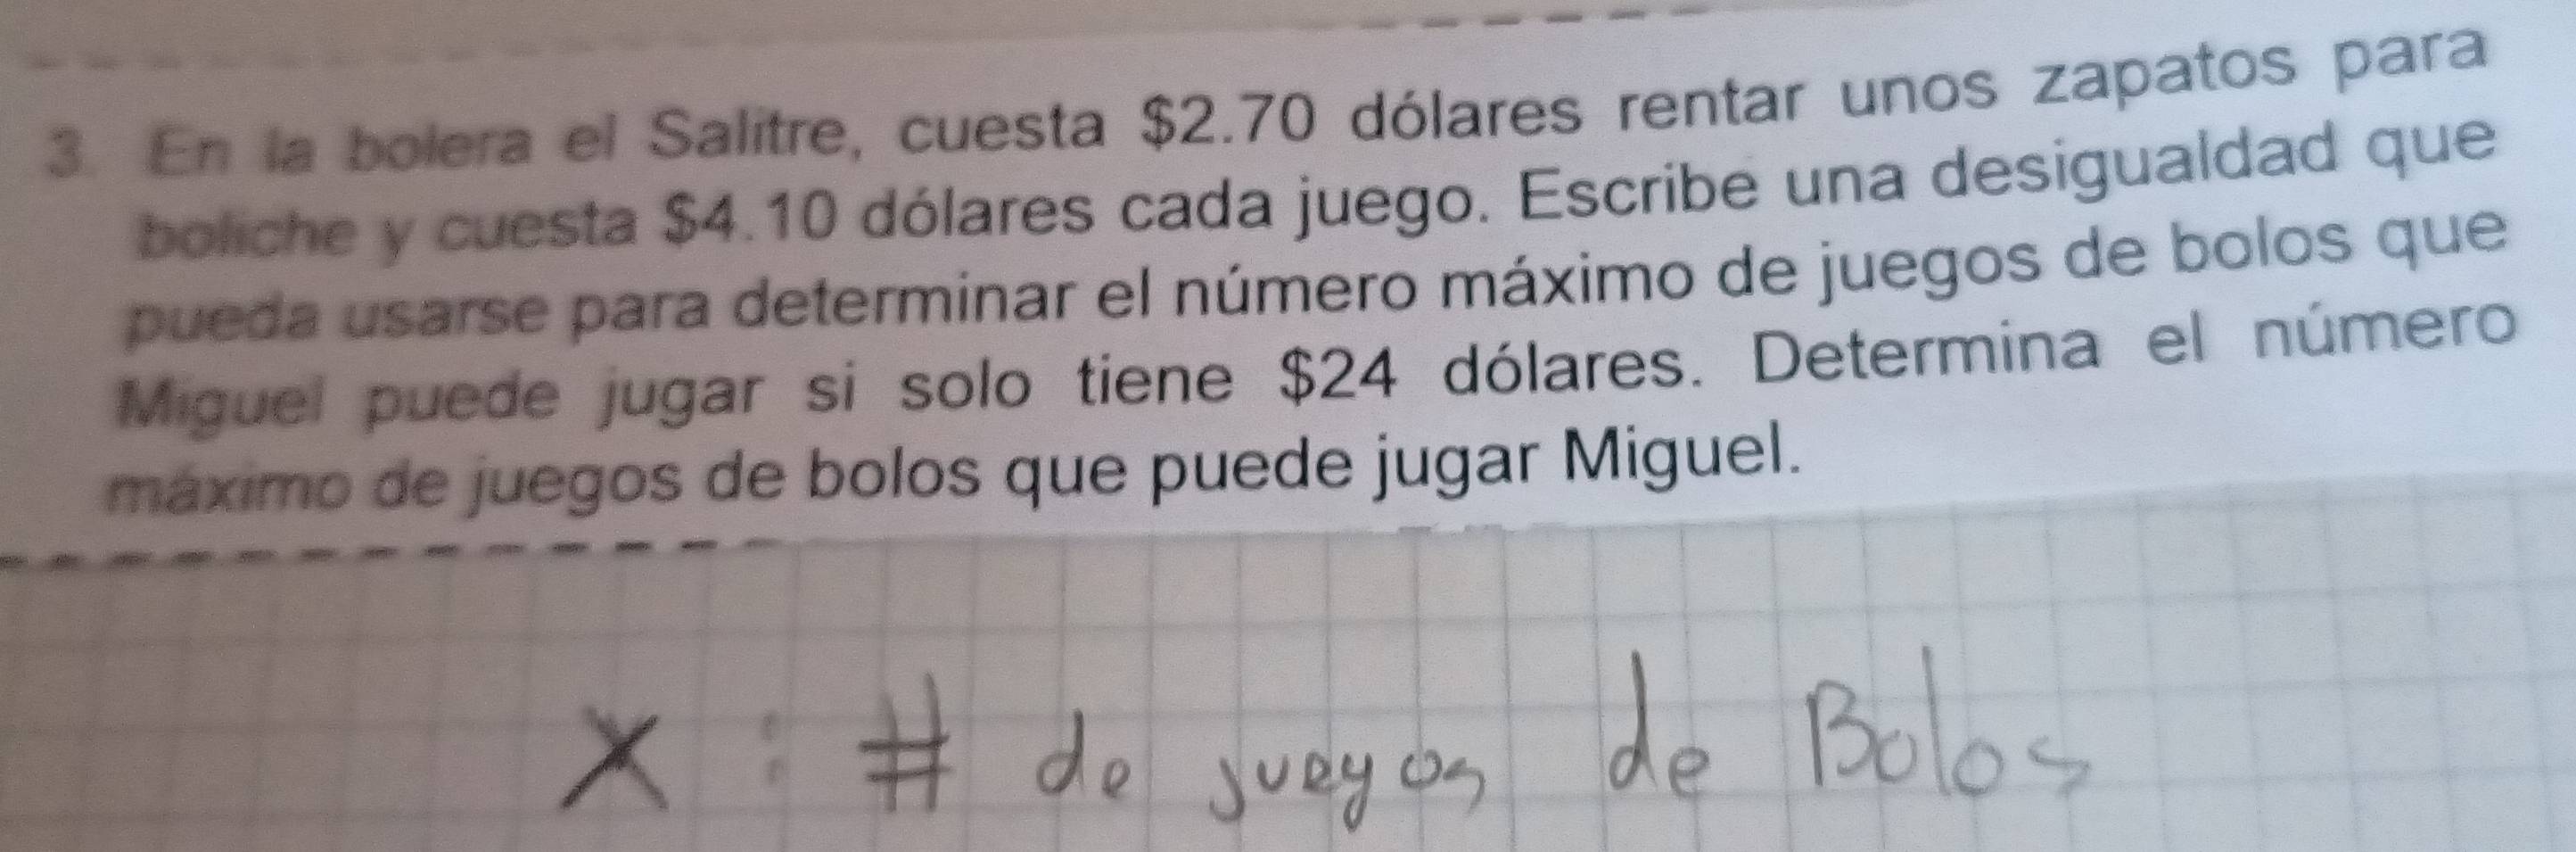 3. En la bolera el Salitre, cuesta $2.70 dólares rentar unos zapatos para
boliche y cuesta $4.10 dólares cada juego. Escribe una desigualdad que
pueda usarse para determinar el número máximo de juegos de bolos que
Miguel puede jugar si solo tiene $24 dólares. Determina el número
máximo de juegos de bolos que puede jugar Miguel.
X : # de juegos de Bolos